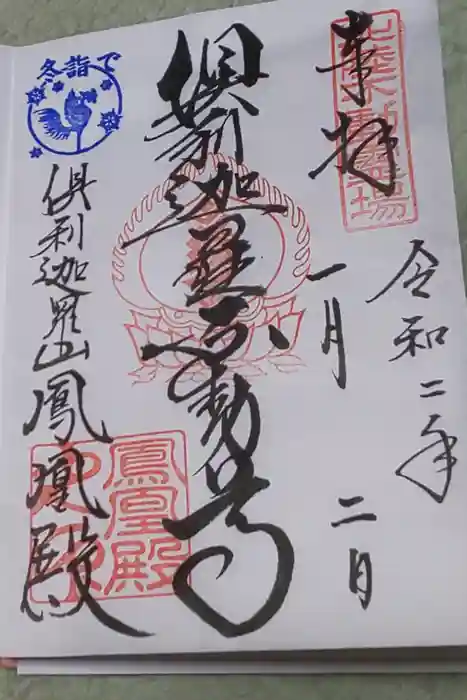 奉拝
北陸不動霊場
令和二年
一月
二日
倶利迦羅不動尊
冬詣で
倶利迦羅山鳳凰殿
鳳凰殿